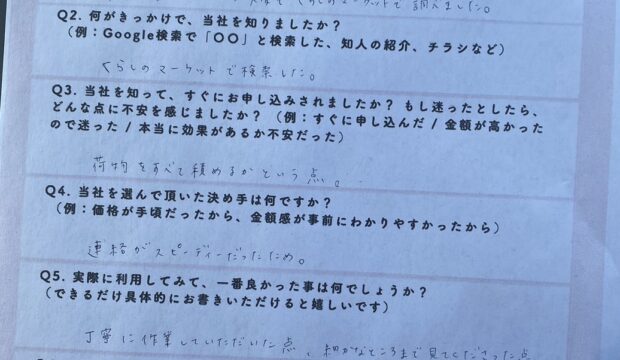 くらしのマーケットで調べました。
Q2. 何がきっかけで、当社を知りましたか？
（例：Google検索で「〇〇」と検索した、知人の紹介、チラシなど）
くらしのマーケットで検索した。
Q3. 当社を知って、すぐにお申し込みされましたか？ もし迷ったとしたら、
どんな点に不安を感じましたか？（例：すぐに申し込んだ / 金額が高かった
ので迷った / 本当に効果があるか不安だった）
荷物をすべて積めるかという点。
Q4. 当社を選んで頂いた決め手は何ですか？
（例：価格が手頃だったから、金額感が事前にわかりやすかったから）
連絡がスピーディーだったため。
Q5. 実際に利用してみて、一番良かった事は何でしょうか？
（できるだけ具体的にお書きいただけると嬉しいです）
丁寧に作業していただいた点、細かなところまで見てくださった点